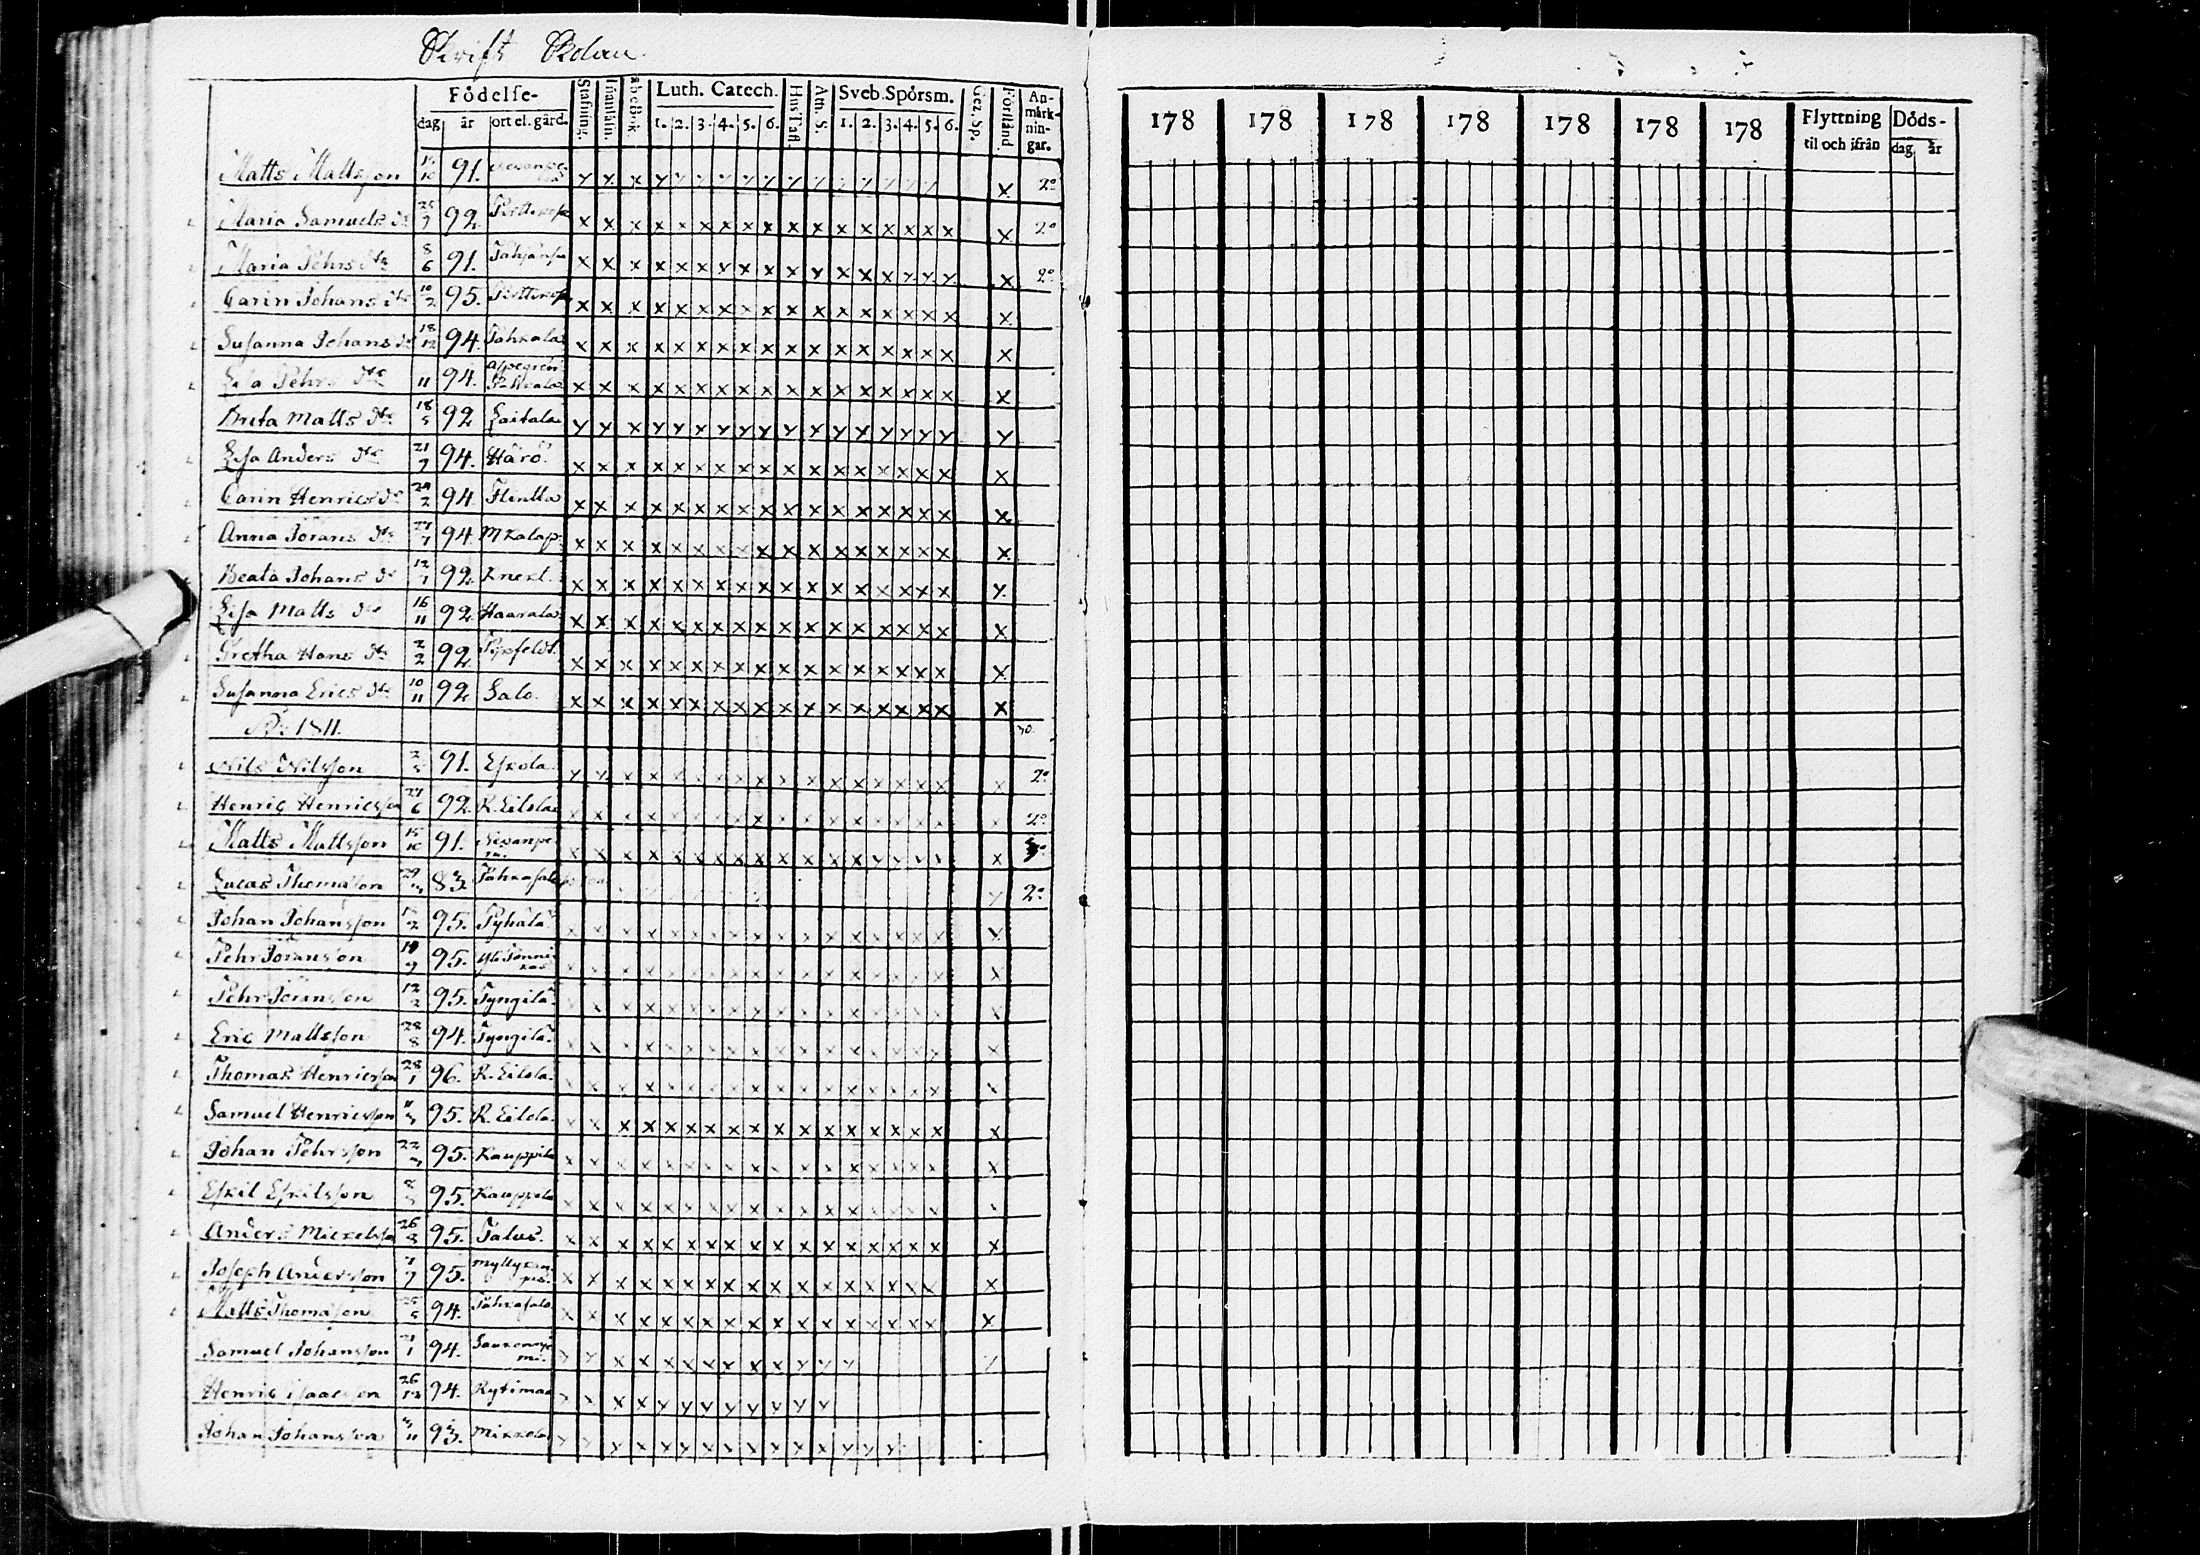 Skrift Skolan
Födelse- Stafning. Innanläs. abc Bok. Luth. Catech. Hus Tafl. Ath. S. Sveb. Spörsm. Gez. Sp. Förstånd Anmärkningar.
dag år ort el. gård. 1. 2. 3. 4. 5. 6. 1. 2. 3. 4. 5. 6.
178 178 178 178 178 178 178 Flyttning til och ifrån Döds- dag år
Matts Mattsson 15/10 91. x x x x x x x x x x x x x x x x x x 2:o
Maria Samuels dr 25/7 92 x x x x x x x x x x x x x x x x x x 2:o
Maria Pehrs dtr 8/6 91. x x x x x x x x x x x x x x x x x x 2:o
Carin Johans dtr 10/2 95. x x x x x x x x x x x x x x x x x x
Susanna Johans dr 18/12 94. x x x x x x x x x x x x x x x x x x
Lisa Pehrs dtr 11 94. x x x x x x x x x x x x x x x x x x
Brita Matts dtr 18/5 92 Laitala x x x x x x x x x x x x x x x x x x
Lisa Anders dtr 21/7 94. Härö. x x x x x x x x x x x x x x x x x x
Carin Henrics dr 24/2 94. x x x x x x x x x x x x x x x x x x
Anna Jörans dtr 27/7 94. x x x x x x x x x x x x x x x x x x
Beata Johans dr 12/7 92. Knekt. x x x x x x x x x x x x x x x x x x
Lisa Matts dtr 16/11 92. Haarala x x x x x x x x x x x x x x x x x x
Gretha Hans dtr 2/2 92. x x x x x x x x x x x x x x x x x x
Susanna Erics dtr 10/11 92. Salo. x x x x x x x x x x x x x x x x x x
1811. 30.
Nils Nilsson 2/5 91. Eskola. x x x x x x x x x x x x x x x x x x 2:o
Henric Henricsson 27/6 92. R. Eilola x x x x x x x x x x x x x x x x x x 2:o
Matts Mattsson 15/10 91. x x x x x x x x x x x x x x x x x x
Lucas Thomasson 29 83. 2:o
Johan Johansson 2 95. Pyhälä x x x x x x x x x x x x x x x x x x
Pehr Jöransson 9 95. x x x x x x x x x x x x x x x x x x
Pehr Jöransson 12/2 95. Tyngilä. x x x x x x x x x x x x x x x x x x
Eric Mattsson 28/8 94. Tyngilä. x x x x x x x x x x x x x x x x x x
Thomas Henricsson 28/1 96. R. Eilola. x x x x x x x x x x x x x x x x x x
Samuel Henricsson 95. R. Eilola. x x x x x x x x x x x x x x x x x x
Johan Pehrsson 22 95. Kauppila x x x x x x x x x x x x x x x x x x
Eskil Eskilsson 8 95. Kauppila x x x x x x x x x x x x x x x x x x
Anders Mickelsson 26/8 95. Talus. x x x x x x x x x x x x x x x x x x
Joseph Andersson 7/9 95. x x x x x x x x x x x x x x x x x x
Matts Thomasson 25/5 94. x x x x x x x x x x x x x x x x x x
Samuel Johansson 21/1 94. x x x x x x x x x x x x x
Henric Isaacsson 26/12 94. Rytimaa x x x x x x x x x x x
Johan Johansson 11 93. Mikkola x x x x x x x x x x x x x x